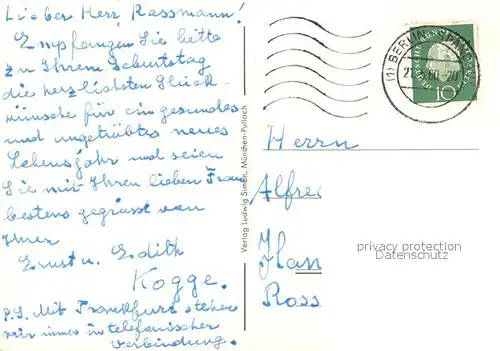 Lieber Herr Rassmann!
Empfangen Sie bitte
zu Ihrem Geburtstag
die herzlichsten Glück
wünsche für ein gesundes
und ungetrübtes neues
Lebensjahr und seien
Sie mit Ihren lieben Frau
bestens gegrüsst von
Ihrer
Ernst u. Edith
Kogge.
P.S. Mit Frankfurt stehen
wir immer in telefonischer
Verbindung.
Verlag Ludwig Simon, München-Pullach
(1) BERLIN-SPANDAU
60.-20
10
Herrn
Alfred
Han
Ross
privacy protection
Datenschutz